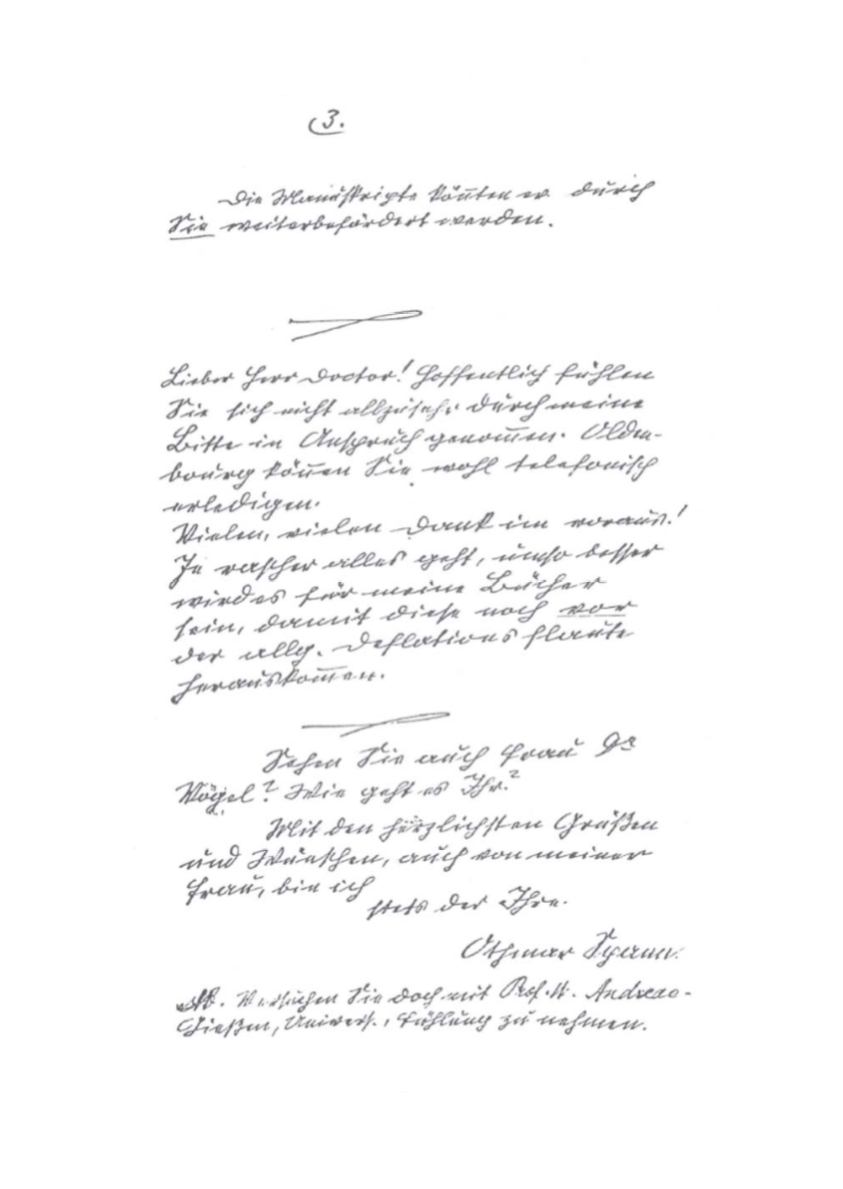 3.
Die Manuskripte könnten ev. durch
Sie weiterbefördert werden.
Lieber Herr Doctor! Hoffentlich fühlen
Sie sich nicht allzusehr durch meine
Bitte in Anspruch genom̅en. Olden-
bourg kön̅en Sie wohl telefonisch
erledigen.
Vielen, vielen Dank im voraus!
Je rascher alles geht, umso besser
wird es für meine Bücher
sein, damit diese noch vor
der allg. Deflationsflaute
herauskom̅en.
Sehen Sie auch Frau Dr
Vögel? Wie geht es Ihr?
Mit den herzlichsten Grüßen
und Wünschen, auch von meiner
Frau, bin ich
stets der Ihre.
Othmar Spann.
NB. Versuchen Sie doch mit Prof. W. Andreae-
Gießen, Univers., Fühlung zu nehmen.